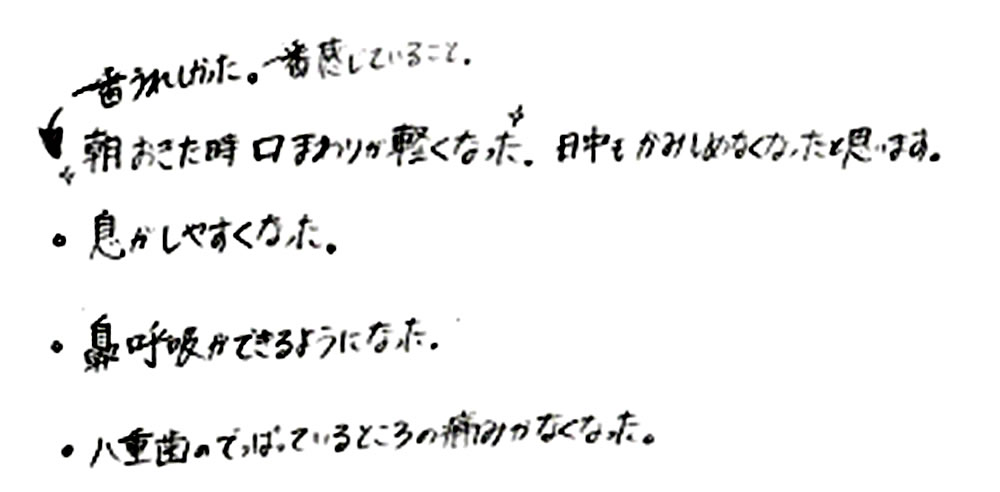 一番うれしかった。一番感じていること。
朝おきた時口まわりが軽くなった。日中もかみしめなくなったと思います。
• 息がしやすくなった。
• 鼻呼吸ができるようになった。
• 八重歯のでっぱっているところの痛みがなくなった。